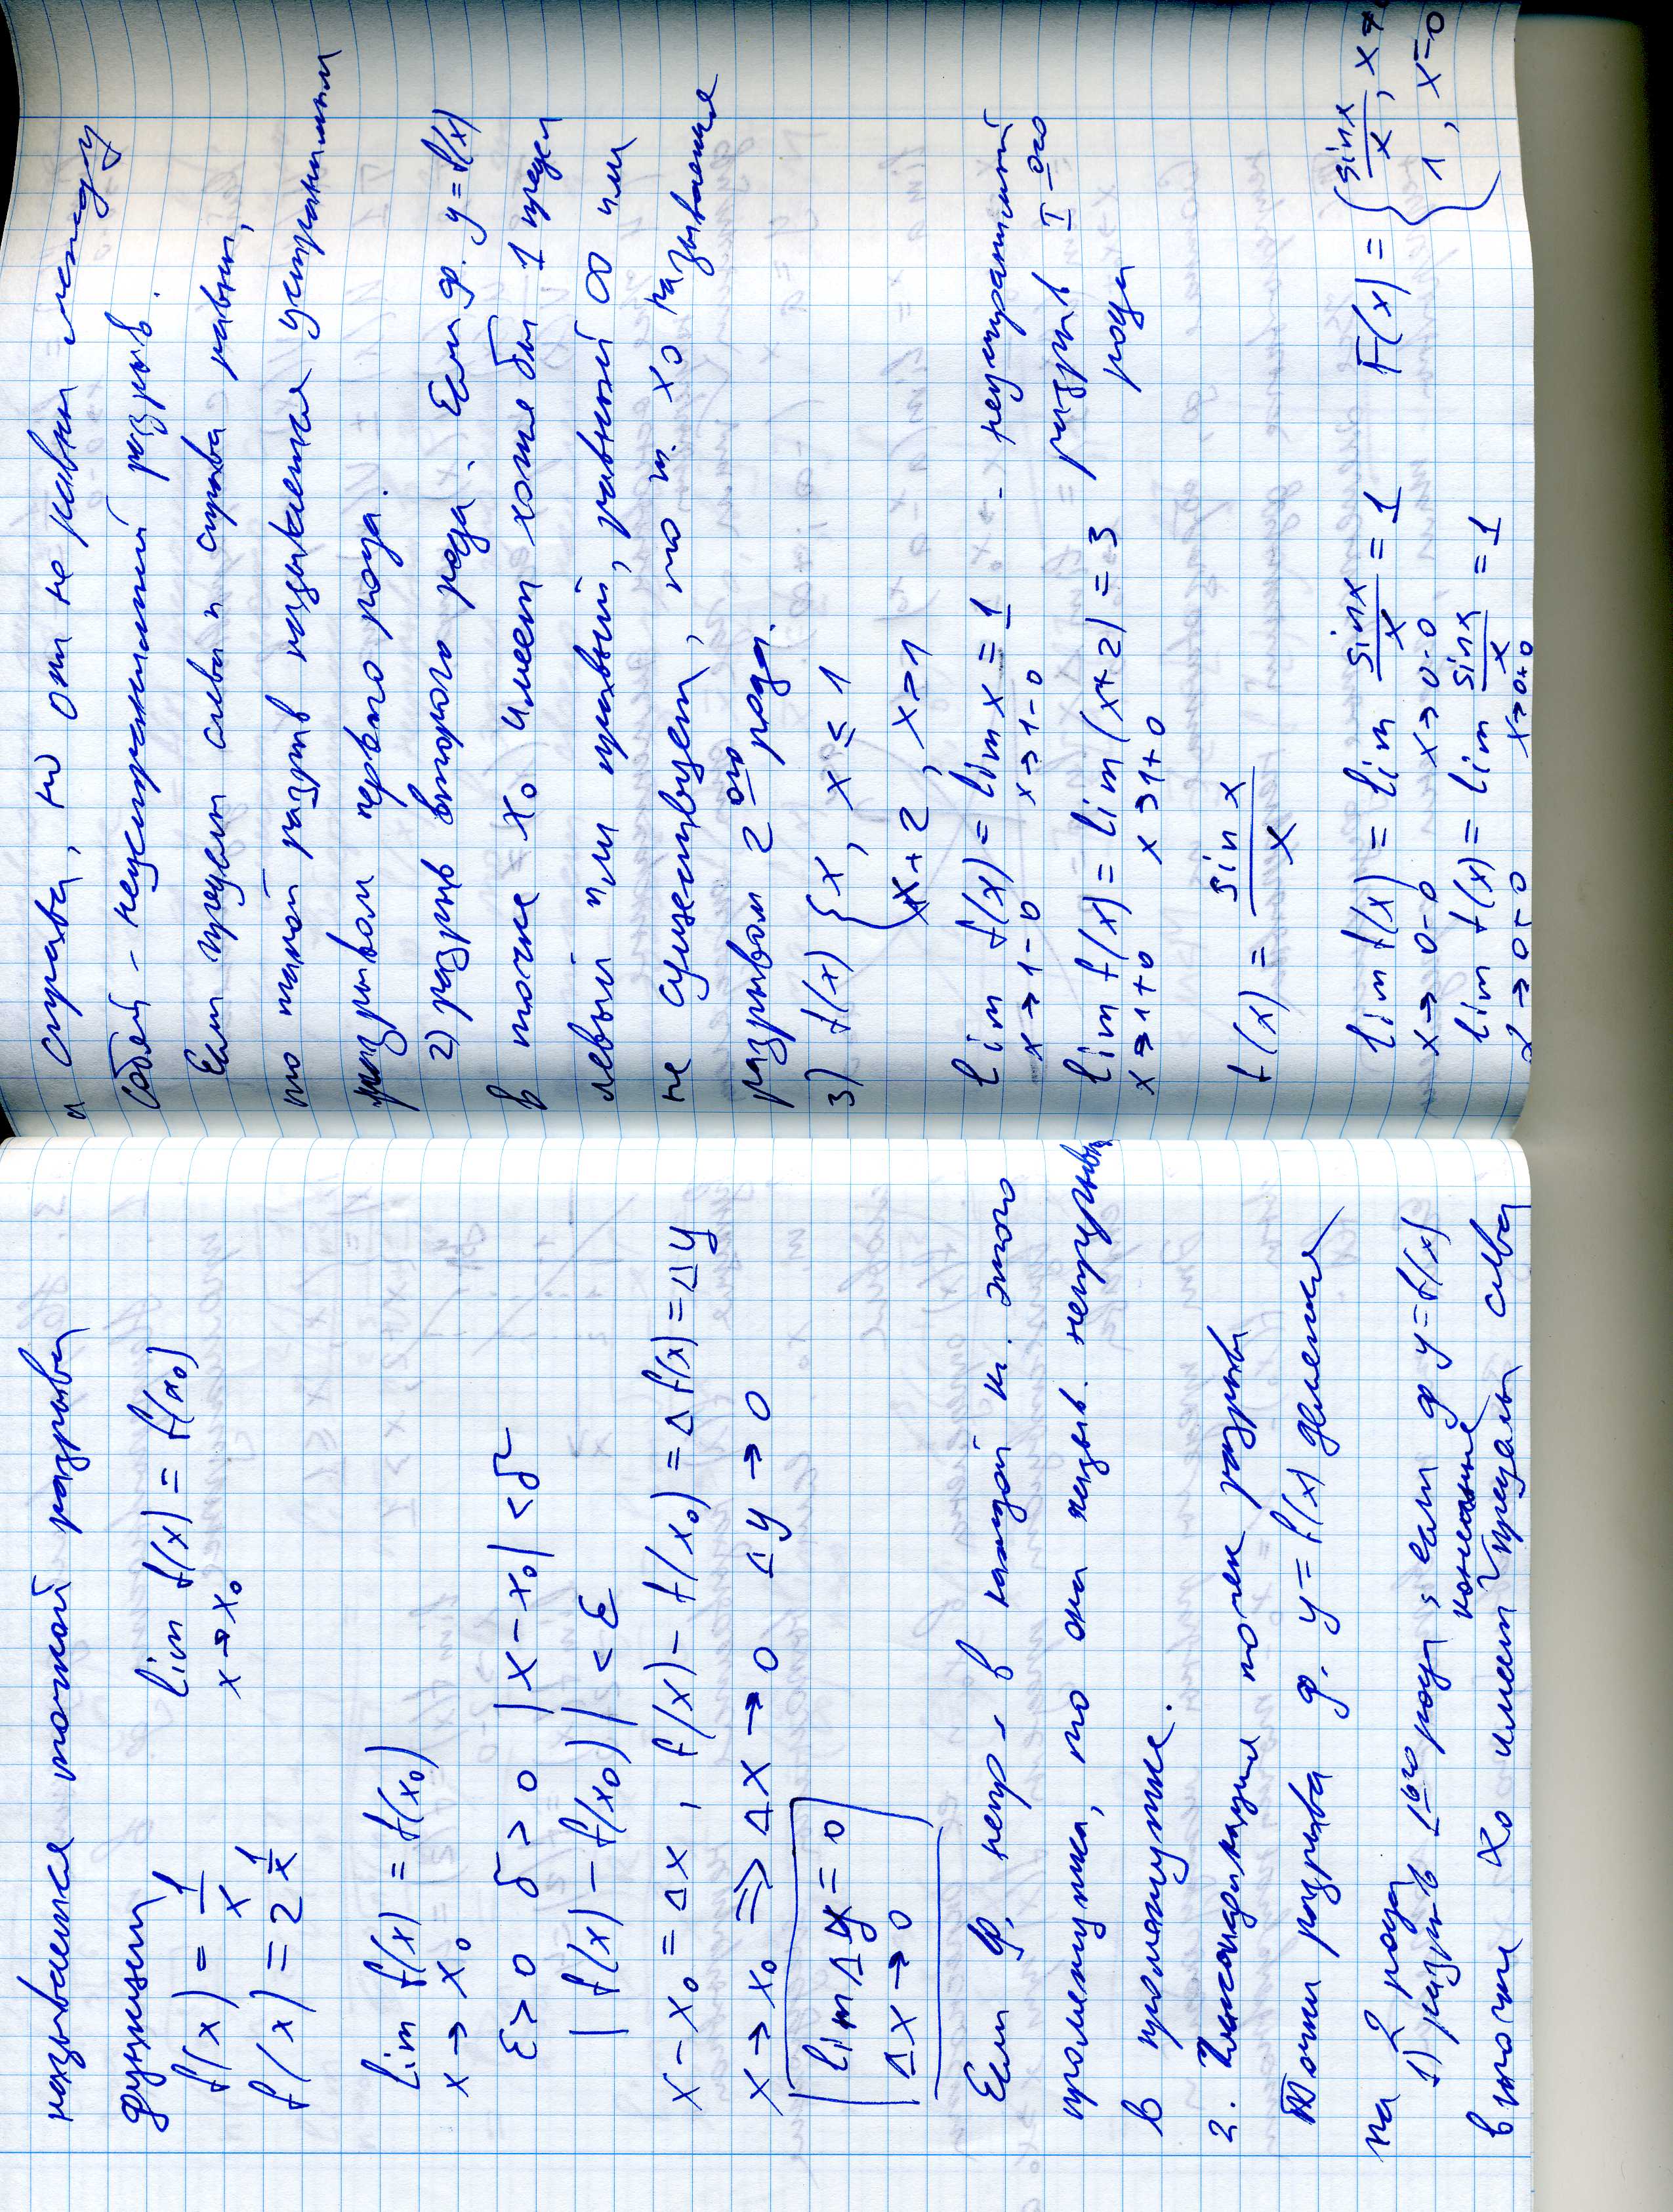 называется точкой разрыва
функции
f(x) = 1/x
lim f(x) = f(x₀)
x→x₀
f(x) = 2^(1/x)
lim f(x) = f(x₀)
x→x₀
ε>0 δ>0 |x-x₀|<δ
|f(x)-f(x₀)|<ε
x-x₀=Δx, f(x)-f(x₀)=Δf(x)=Δy
x→x₀ ⇒ Δx→0 Δy→0
lim Δy=0
Δx→0
Если ф. непр-в каждой т. этого
промежутка, то она назыв. непрерывн
в промежутке.
2. Классификация точек разрыва
Точки разрыва ф. y=f(x) делятся
на 2 рода
1) разрыв 1ого рода, если ф y=f(x)
конечные
в точке x₀ имеет пределы слева
и справа, но они не равны между
собой - неустранимый разрыв.
Если пределы слева и справа равны,
то такой разрыв называется устранимым
разрывом первого рода.
2) разрыв второго рода. Если ф. y=f(x)
в точке x₀ имеет хотя бы 1 предел
левый или правый, равный ∞ или
не существует, то т. x₀ называется
разрывом 2ого рода.
3) f(x) { x, x ≤ 1
x+2, x>1
lim f(x) = lim x = 1 - неустранимый
x→1-0 x→1-0 разрыв I-ого
lim f(x) = lim (x+2) = 3 рода
x→1+0 x→1+0
f(x) = sin x / x
lim f(x) = lim sin x / x = 1
x→0-0 x→0-0
lim f(x) = lim sin x / x = 1
x→0+0 x→0+0
F(x) = { sin x / x, x≠
1, x=0